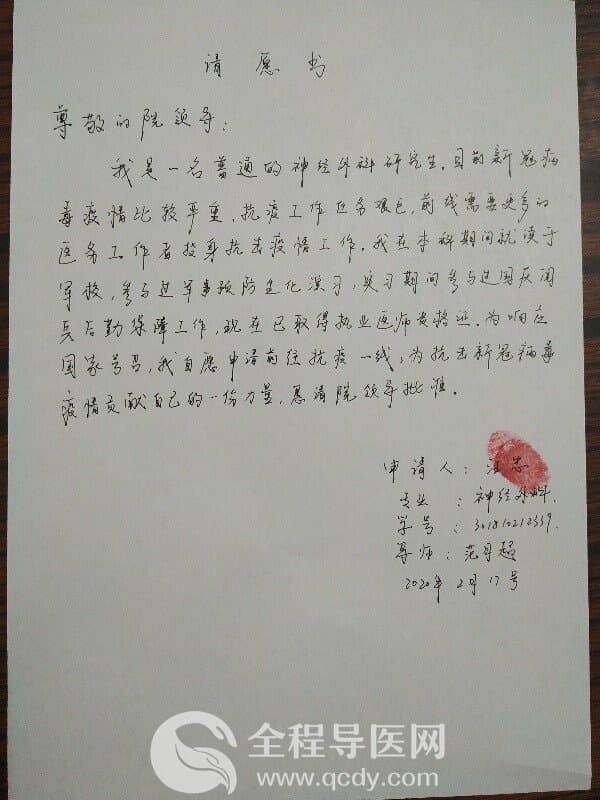 请愿书
尊敬的院领导：
我是一名普通的神经外科研究生。目前新冠病
毒疫情比较严重，抗疫工作任务艰巨，前线需要更多的
医务工作者投身抗击疫情工作。我在本科期间就读于
军校，参与过军事预防生化演习，实习期间参与过国庆阅
兵后勤保障工作，现在已取得执业医师资格证。为响应
国家号召，我自愿申请前往抗疫一线，为抗击新冠病毒
疫情贡献自己的一份力量，恳请院领导批准。
申请人：汪
专业：神经外科
学号：301810212339
导师：范月超
2020年2月17号
全程导医网
www.qcdy.com